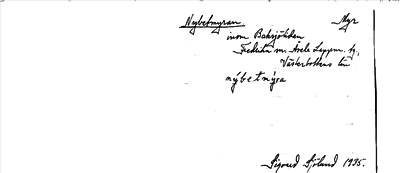 Nybetmyran. Myr
inom Baksjöliden
Fredrika sn. Åsele Lappm. tg.
Västerbottens län
nybetmyra
Sigurd Sjölund 1935.